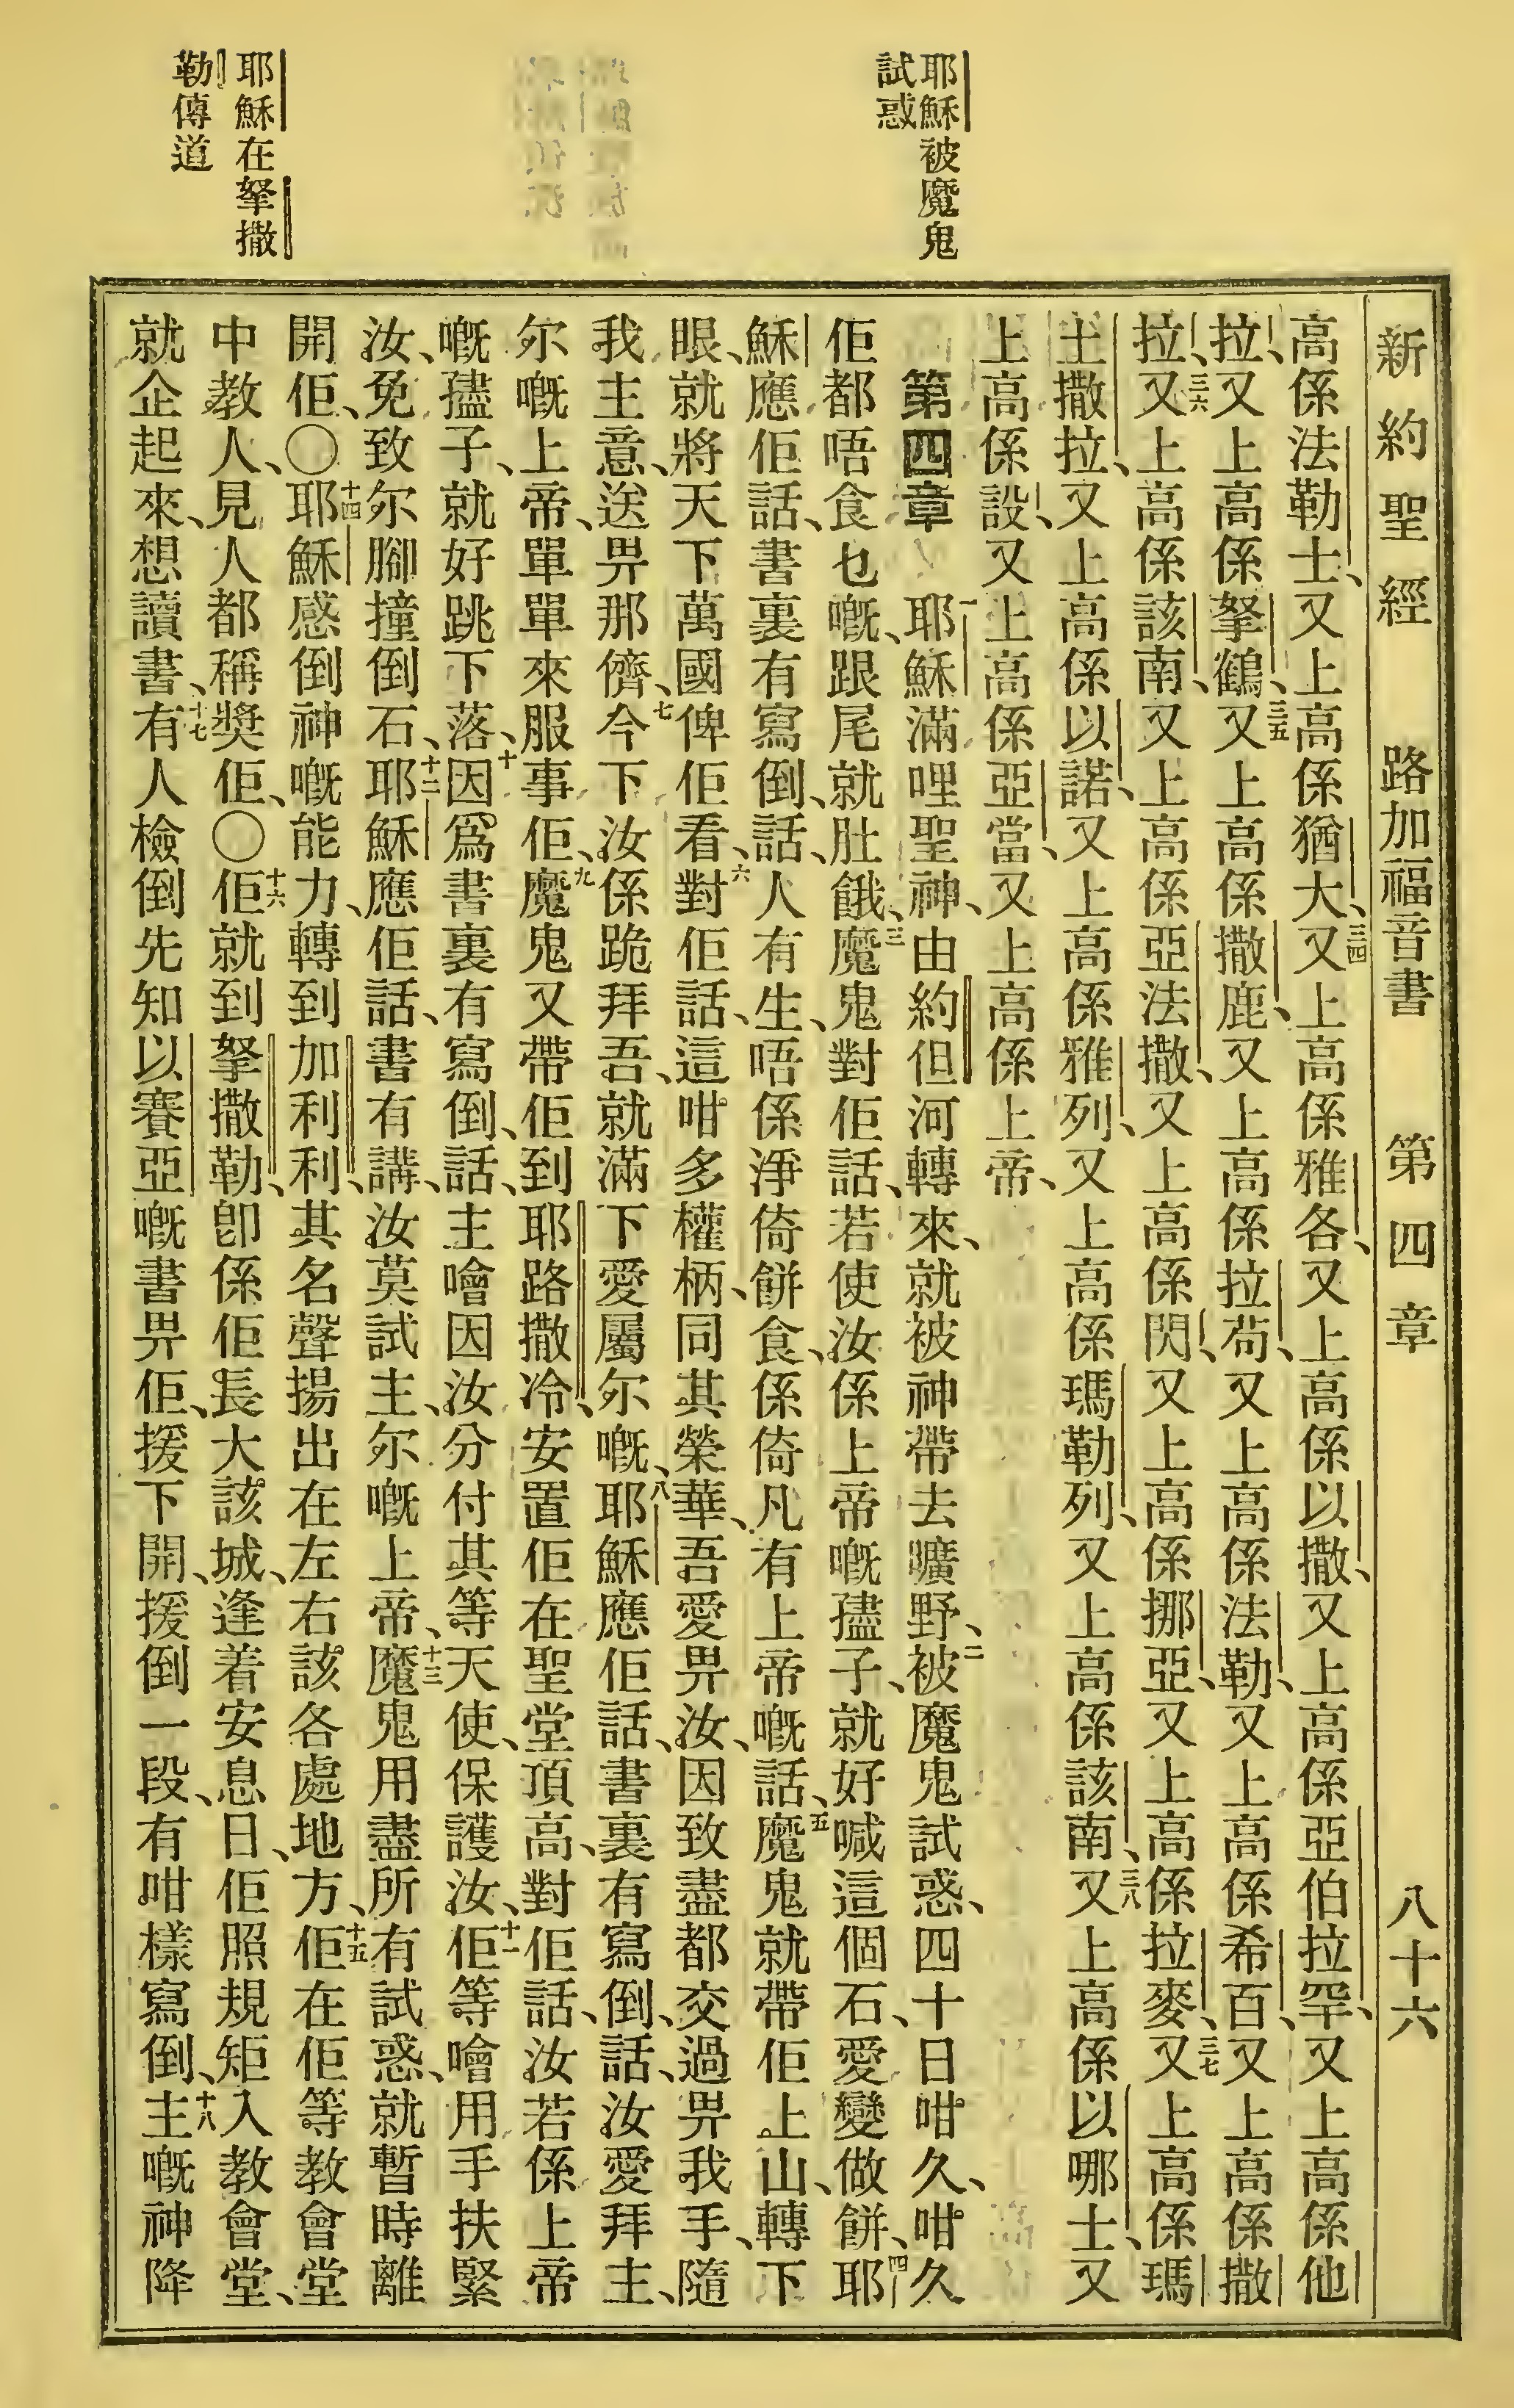 新約聖經　路加福音書　第四章　八十六
耶穌被魔鬼
試惑
耶穌在拏撒
勒傳道
高係法勒士、又上高係猶大、三四又上高係雅各、又上高係以撒、又上高係亞伯拉罕、又上高係他
拉、又上高係拏鶴、三五又上高係撒鹿、又上高係拉茍、又上高係法勒、又上高係希百、又上高係撒
拉、三六又上高係該南、又上高係亞法撒、又上高係閃、又上高係挪亞、又上高係拉麥、三七又上高係瑪
土撒拉、又上高係以諾、又上高係雅列、又上高係瑪勒列、又上高係該南、三八又上高係以哪士、又
上高係設、又上高係亞當、又上高係上帝、
第四章　一耶穌滿哩聖神、由約但河轉來、就被神帶去曠野、二被魔鬼試惑、四十日咁久、咁久
佢都唔食乜嘅、跟尾就肚餓、三魔鬼對佢話、若使汝係上帝嘅孻子、就好喊這個石、愛變做餅、四耶
穌應佢話、書裏有寫倒、話、人有生、唔係淨倚餅食、係倚凡有上帝嘅話、五魔鬼就帶佢上山、轉下
眼、就將天下萬國俾佢看、六對佢話、這咁多權柄、同其榮華、吾愛畀汝、因致盡都交過畀我手、隨
我主意、送畀那儕、七今下汝係跪拜吾、就滿下愛屬尔嘅、八耶穌應佢話、書裏有寫倒、話、汝愛拜主、
尔嘅上帝、單單來服事佢、九魔鬼又帶佢到耶路撒冷、安置佢在聖堂頂高、對佢話、汝若係上帝
嘅孻子、就好跳下落、十因爲書裏有寫倒、話、主噲因汝分付其等天使、保護汝、十一佢等噲用手扶緊
汝、免致尔腳撞倒石、十二耶穌應佢話、書有講、汝莫試主、尔嘅上帝、十三魔鬼用盡所有試惑、就暫時離
開佢、〇十四耶穌感倒神嘅能力、轉到加利利、其名聲揚出在左右該各處地方、十五佢在佢等教會堂
中教人、見人都稱獎佢、〇十六佢就到拏撒勒、卽係佢長大該城、逢着安息日、佢照規矩入教會堂、
就企起來、想讀書、十七有人檢倒先知以賽亞嘅書畀佢、援下開、援倒一段、有咁樣寫倒、十八主嘅神降